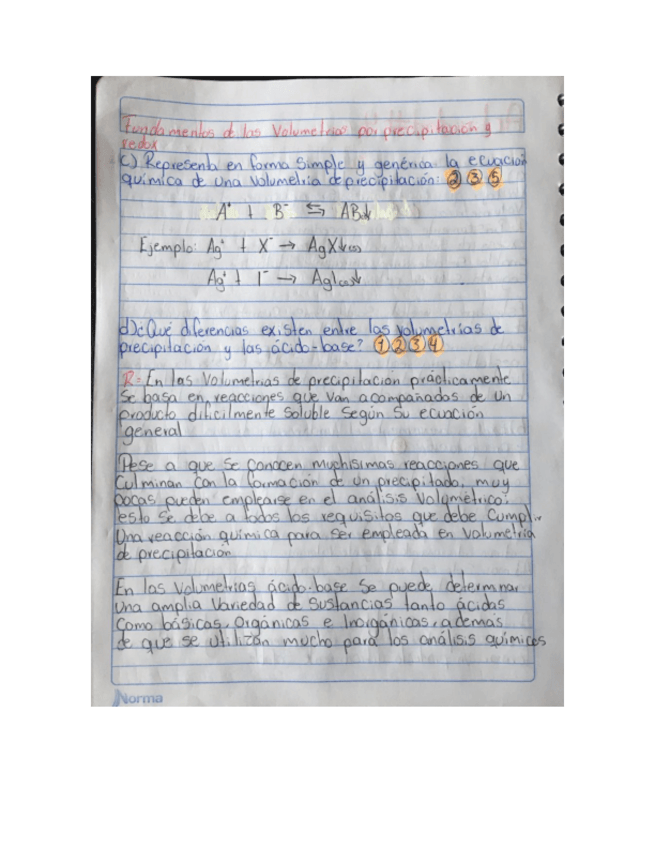 Fundamentos de las Volumetrias por precipitación y
redox
C) Representa en forma simple y genérica la ecuación
química de una volumetria de precipitación: ② ③ ⑤
A⁺ + B⁻ ⇆ AB↓
Ejemplo: Ag⁺ + X⁻ → AgX↓(s)
Ag⁺ + I⁻ → AgI(s)↓
d) ¿Qué diferencias existen entre las volumetrías de
precipitación y las ácido-base? ① ② ③ ④
R= En las Volumetrias de precipitación prácticamente
se basa en reacciones que van acompañados de un
producto difícilmente soluble según su ecuación
general
Pese a que se conocen muchisimas reacciones que
culminan con la formación de un precipitado, muy
pocas pueden emplearse en el análisis volumétrico;
esto se debe a todos los requisitos que debe cumplir
Una reacción química para ser empleada en Volumetría
de precipitación
En las Volumetrias ácido-base se puede determinar
una amplia Variedad de sustancias tanto ácidas
como básicas, Orgánicas e Inorgánicas, además
de que se utilizan mucho para los análisis químicos
Norma